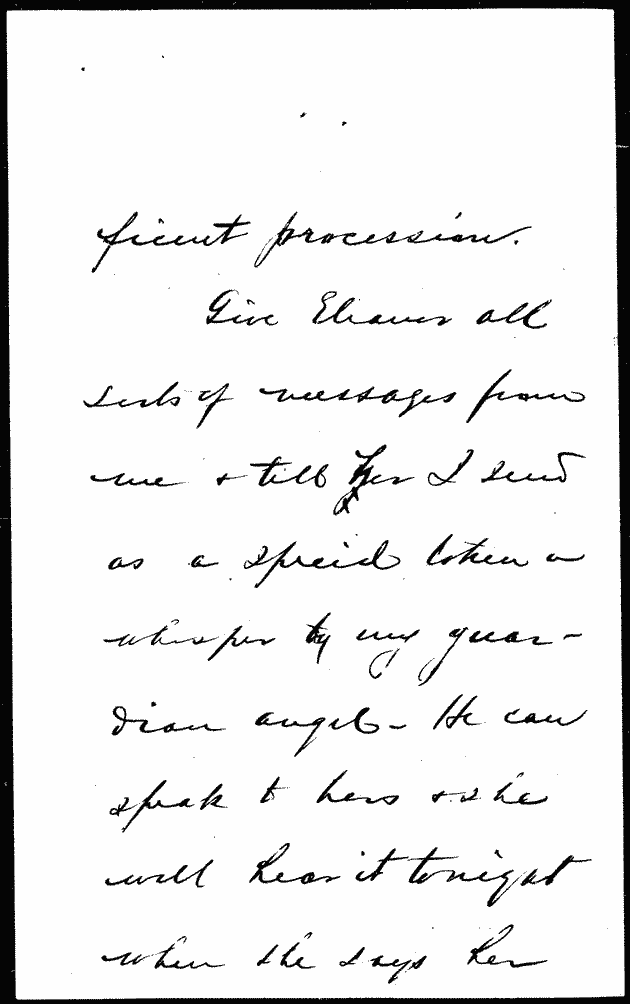 ficent procession.
Give Eleanor all
sorts of messages from
me & tell her I send
as a special token a
whisper by my guar-
dian angel - He can
speak to hers & she
will hear it tonight
when she says her